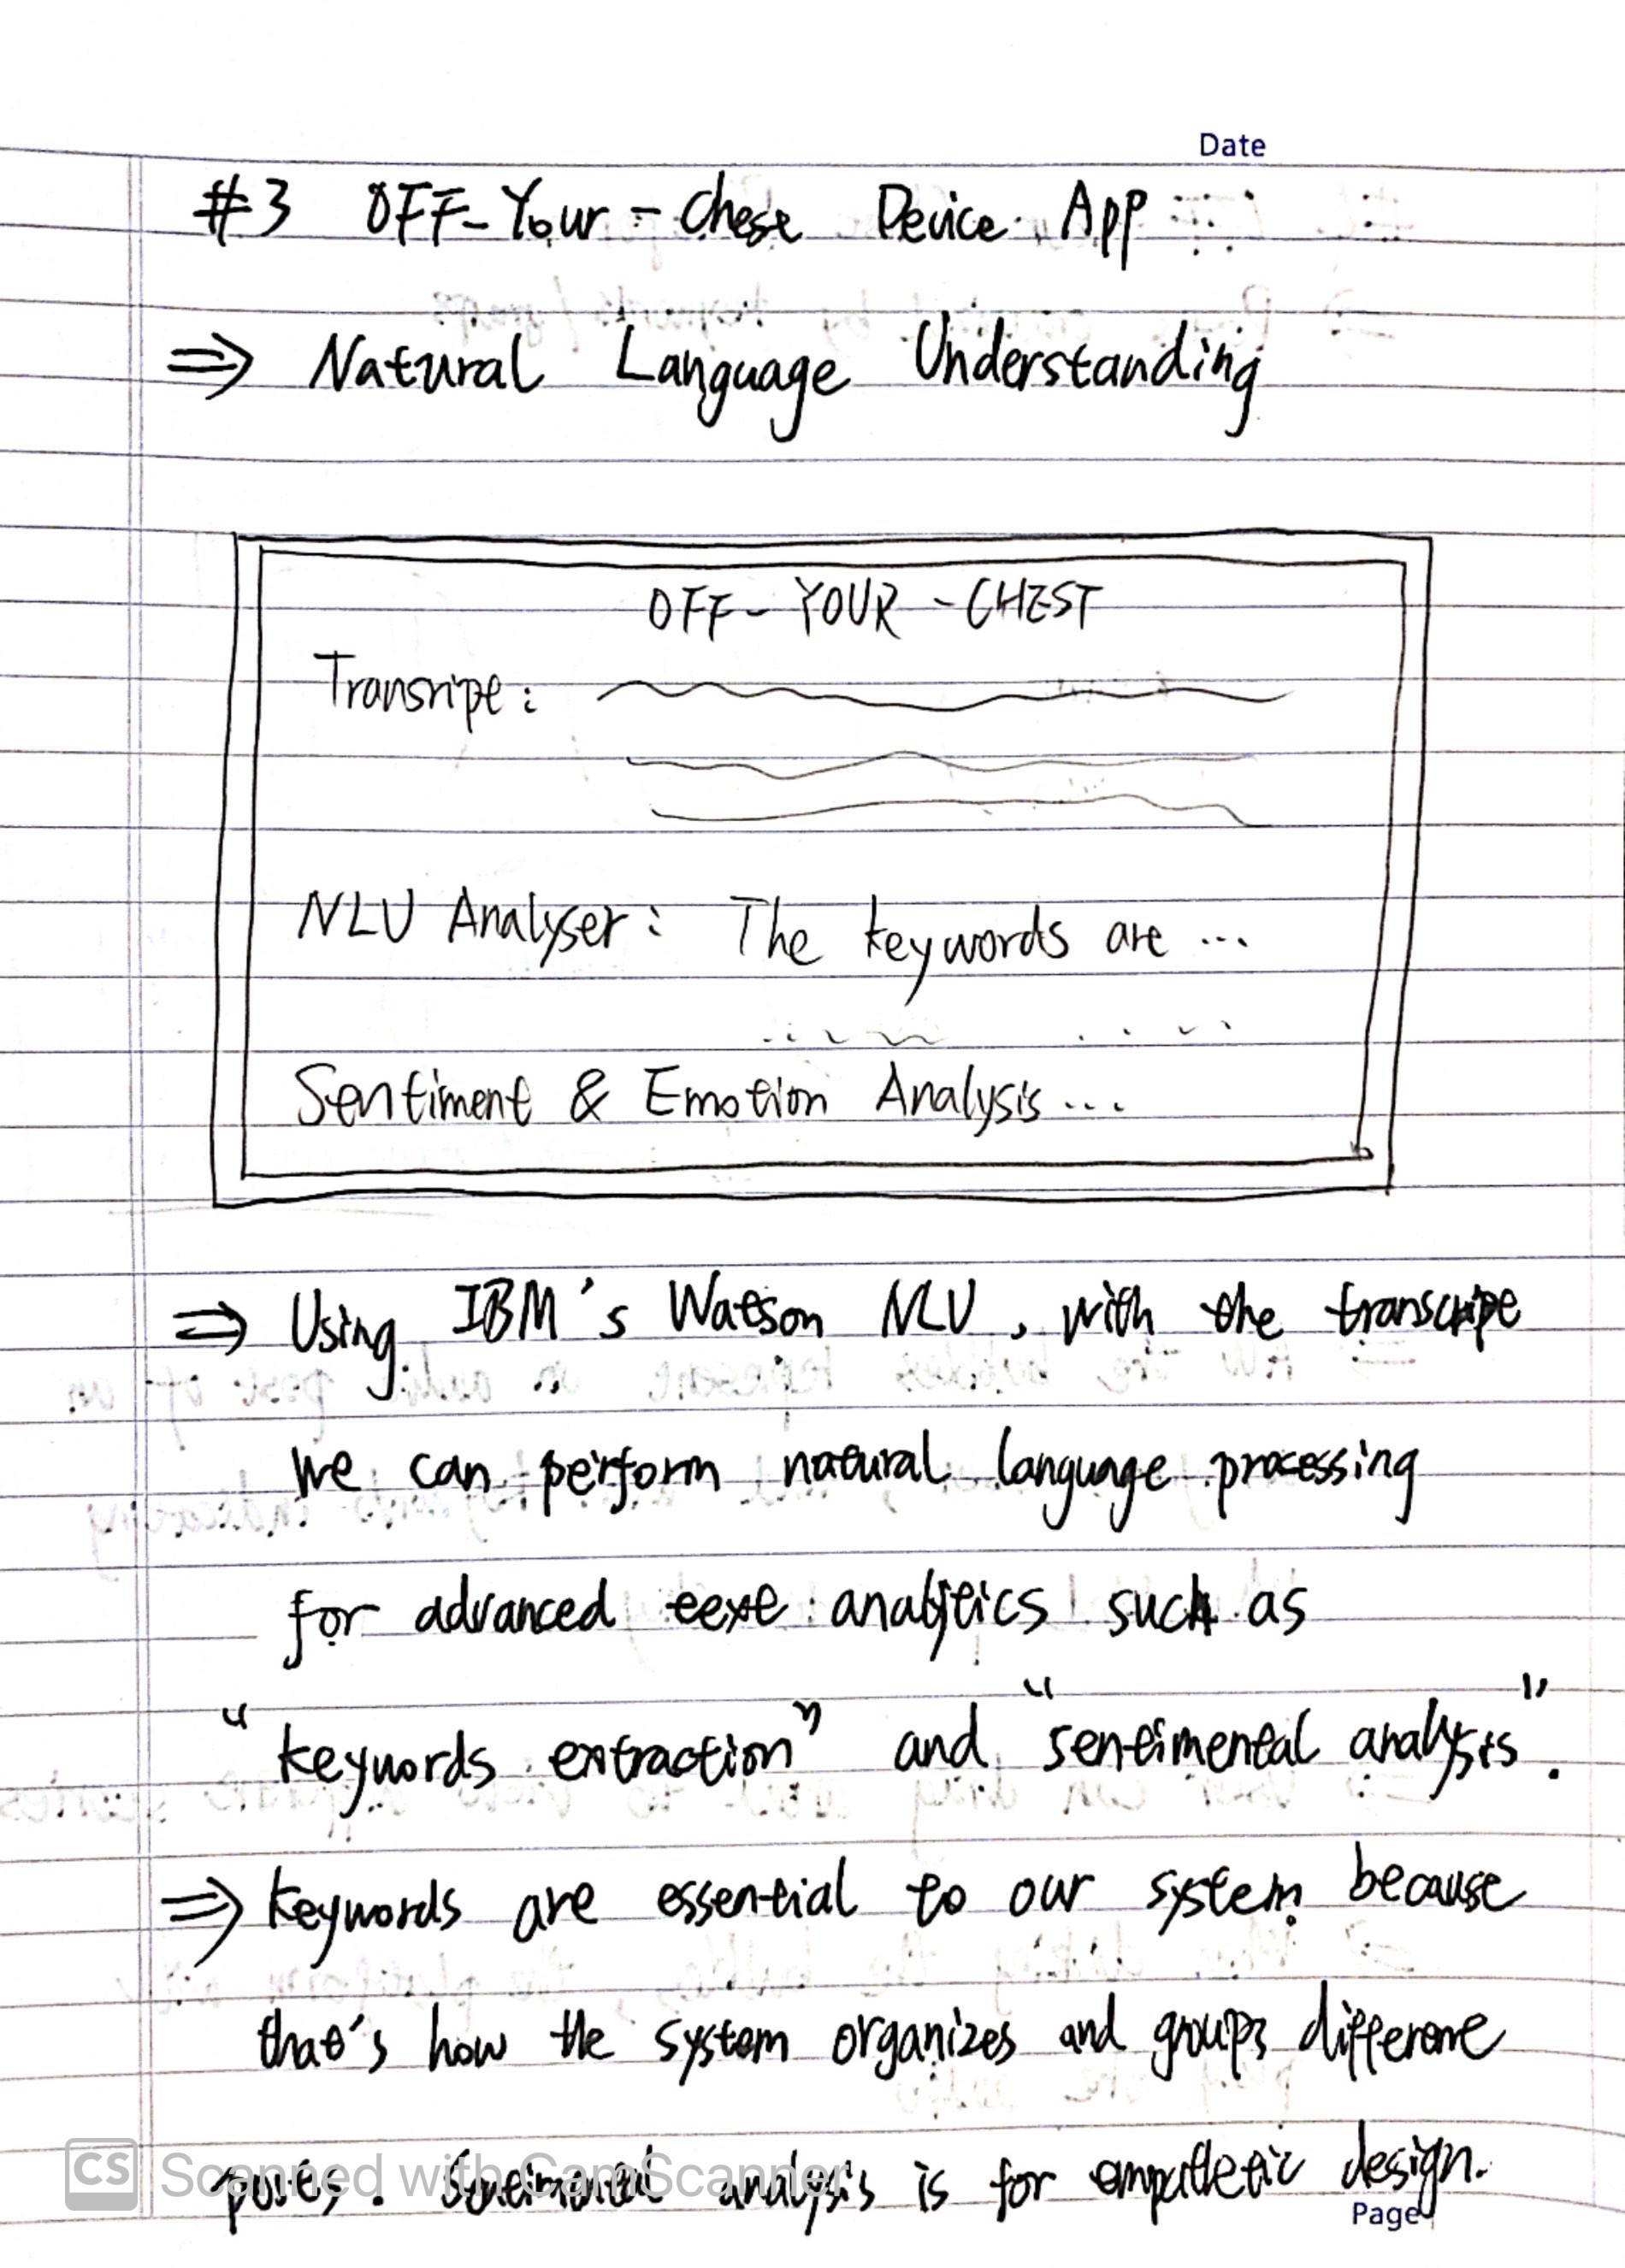 Date
#3 OFF-Your-Chest Device App
⇒ Natural Language Understanding
OFF-YOUR-CHEST
Transript:
NLU Analyser: The keywords are ...
Sentiment & Emotion Analysis...
⇒ Using IBM's Watson NLU, with the transcript
we can perform natural language processing
for advanced text analytics such as
"keywords extraction" and "sentimental analysis".
⇒ keywords are essential to our system because
that's how the system organizes and groups different
posts. Sentimental analysis is for empathetic design.
CS Scanned with CamScanner
Page